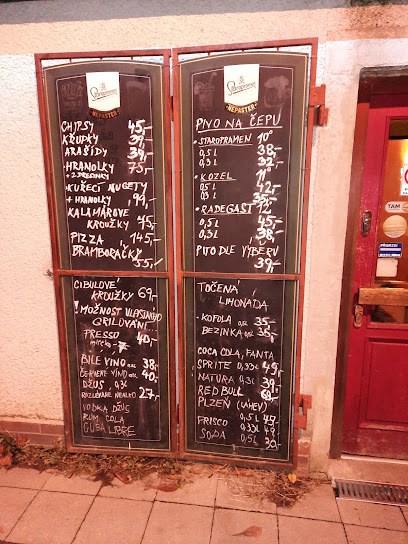 Staropramen
NEPASTER
CHIPSY 45,-
KŘUPKY 39,-
ARAŠÍDY 39,-
HRANOLKY 75,-
+ 2 DRESINKY
KUŘECÍ NUGETY
+ HRANOLKY 99,-
KALAMÁROVÉ
KROUŽKY 95,-
PIZZA 145,-
BRAMBORAČKY
55,-
CIBULOVÉ
KROUŽKY 69,-
! MOŽNOST VLASTNÍHO
GRILOVÁNÍ
PRESSO 40,-
mléko 7
BÍLÉ VÍNO 38,-
ČERVENÉ VÍNO 40,-
DŽUS 0,3l
ROZLÉVANÉ NEALKO 27,-
VODKA DŽUS
RUM COLA
CUBA LIBRE
Staropramen
NEPASTER
PIVO NA ČEPU
• STAROPRAMEN 10°
0,5 l 38,-
0,3 l 32,-
• KOZEL 11°
0,5 l 42,-
0,3 l 35,-
• RADEGAST 12°
0,5 l 45,-
0,3 l 38,-
PIVO DLE VÝBĚRU
39,-
TOČENÁ
LIMONÁDA
• KOFOLA 35,-
BEZINKA 35,-
COCA COLA, FANTA
SPRITE 0,33l 45,-
NATURA 0,3l 39,-
RED BULL 69,-
PLZEŇ (LAHEV)
0,5 l 49,-
FRISCO 0,33l 49,-
SODA 0,5 l 30,-
TAM